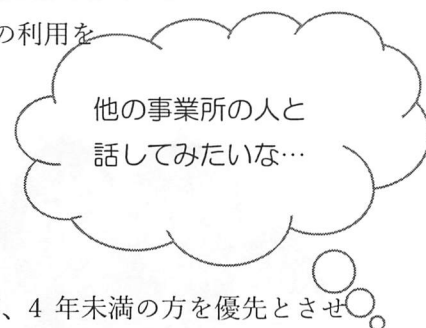 の利用を
他の事業所の人と
話してみたいな…
、4 年未満の方を優先とさせ